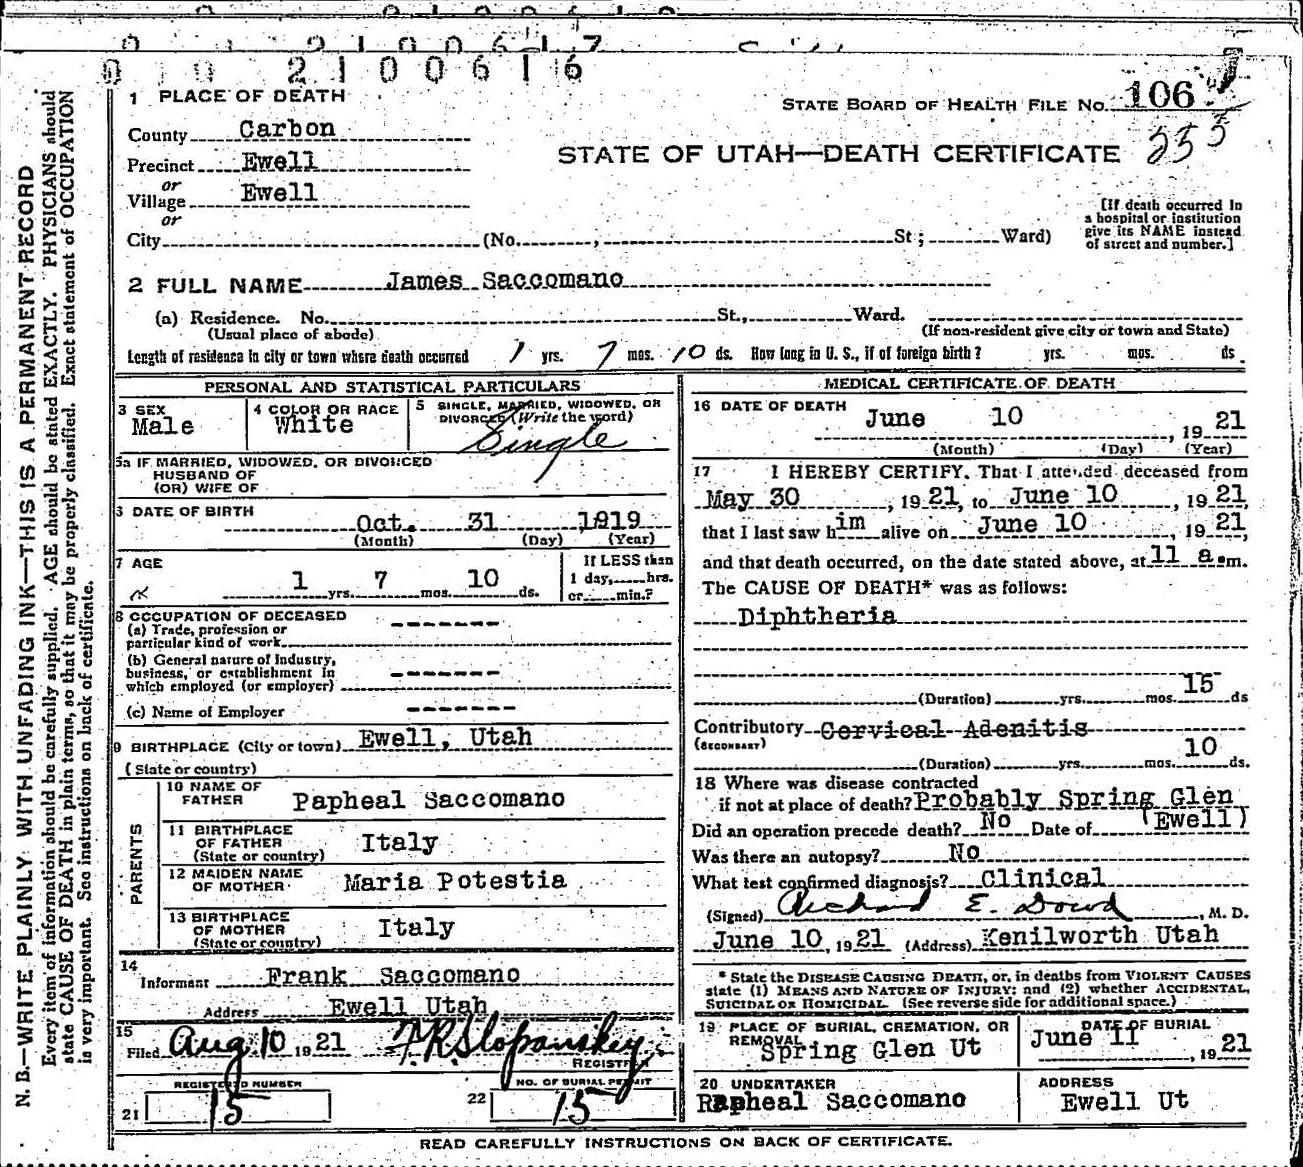 2100617
210061 6
1 PLACE OF DEATH
STATE BOARD OF HEALTH FILE NO. 106
County Carbon
235
Precinct Ewell
STATE OF UTAH—DEATH CERTIFICATE
or
Village Ewell
or
City (No. , St ; Ward)
[If death occurred in
a hospital or institution
give its NAME instead
of street and number.]
2 FULL NAME James Saccomano
(a) Residence. No. St., Ward.
(Usual place of abode) (If non-resident give city or town and State)
Length of residence in city or town where death occurred 1 yrs. 7 mos. 10 ds. How long in U. S., if of foreign birth? yrs. mos. ds.
PERSONAL AND STATISTICAL PARTICULARS
3 SEX
Male
4 COLOR OR RACE
White
5 SINGLE, MARRIED, WIDOWED, OR
DIVORCED (Write the word)
Single
5a IF MARRIED, WIDOWED, OR DIVORCED
HUSBAND OF
(OR) WIFE OF
6 DATE OF BIRTH
Oct. 31 1919
(Month) (Day) (Year)
7 AGE
1 yrs. 7 mos. 10 ds.
If LESS than
1 day, hrs.
or min.?
8 OCCUPATION OF DECEASED
(a) Trade, profession or
particular kind of work
(b) General nature of Industry,
business, or establishment in
which employed (or employer)
(c) Name of Employer
9 BIRTHPLACE (City or town) Ewell, Utah
(State or country)
PARENTS
10 NAME OF
FATHER Papheal Saccomano
11 BIRTHPLACE
OF FATHER Italy
(State or country)
12 MAIDEN NAME
OF MOTHER Maria Potestia
13 BIRTHPLACE
OF MOTHER Italy
(State or country)
14
Informant Frank Saccomano
Address Ewell Utah
15
Filed Aug 10 1921 F. R. Slopanskey
REGISTRAR
REGISTERED NUMBER
21 15
NO. OF BURIAL PERMIT
22 15
MEDICAL CERTIFICATE OF DEATH
16 DATE OF DEATH
June 10, 1921
(Month) (Day) (Year)
17 I HEREBY CERTIFY. That I attended deceased from
May 30, 1921, to June 10, 1921
that I last saw him alive on June 10, 1921,
and that death occurred, on the date stated above, at 11 a.m.
The CAUSE OF DEATH* was as follows:
Diphtheria
(Duration) yrs. mos. 15 ds
Contributory Cervical Adenitis
(SECONDARY)
(Duration) yrs. mos. 10 ds.
18 Where was disease contracted
if not at place of death? Probably Spring Glen
(Ewell)
Did an operation precede death? No Date of
Was there an autopsy? No
What test confirmed diagnosis? Clinical
(Signed) Richard E. Dowd, M. D.
June 10, 1921 (Address) Kenilworth Utah
* State the DISEASE CAUSING DEATH, or, in deaths from VIOLENT CAUSES
state (1) MEANS AND NATURE OF INJURY; and (2) whether ACCIDENTAL,
SUICIDAL OR HOMICIDAL. (See reverse side for additional space.)
19 PLACE OF BURIAL, CREMATION, OR
REMOVAL
Spring Glen Ut
DATE OF BURIAL
June 11, 1921
20 UNDERTAKER
Rapheal Saccomano
ADDRESS
Ewell Ut
READ CAREFULLY INSTRUCTIONS ON BACK OF CERTIFICATE.
N. B.—WRITE PLAINLY WITH UNFADING INK—THIS IS A PERMANENT RECORD
Every item of information should be carefully supplied. AGE should be stated EXACTLY. PHYSICIANS should
state CAUSE OF DEATH in plain terms, so that it may be properly classified. Exact statement of OCCUPATION
is very important. See instructions on back of certificate.